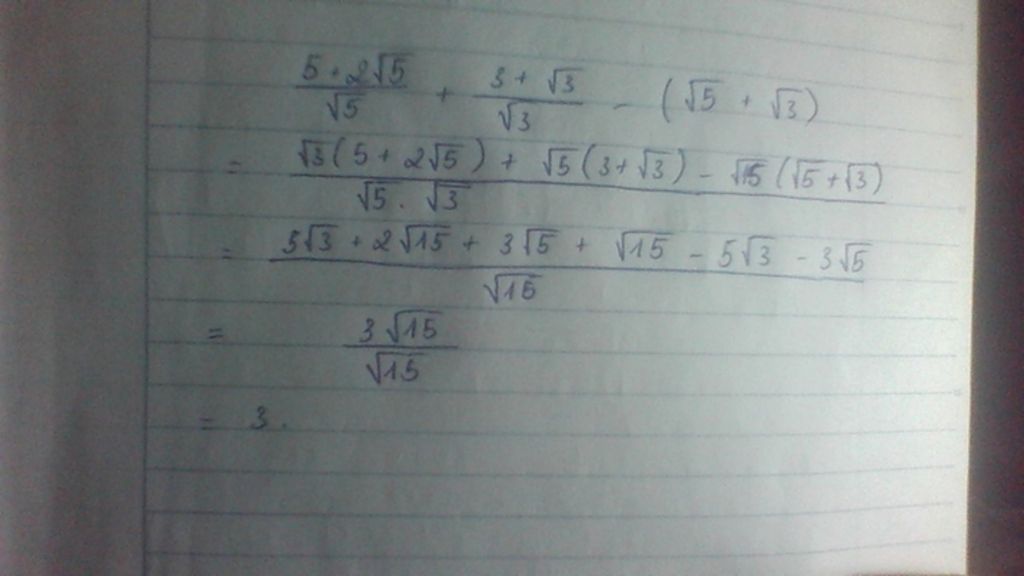 (5 + 2√5)/√5 + (3 + √3)/√3 - (√5 + √3)
= (√3(5 + 2√5) + √5(3 + √3) - √15(√5 + √3))/(√5 . √3)
= (5√3 + 2√15 + 3√5 + √15 - 5√3 - 3√5)/√15
= 3√15/√15
= 3.